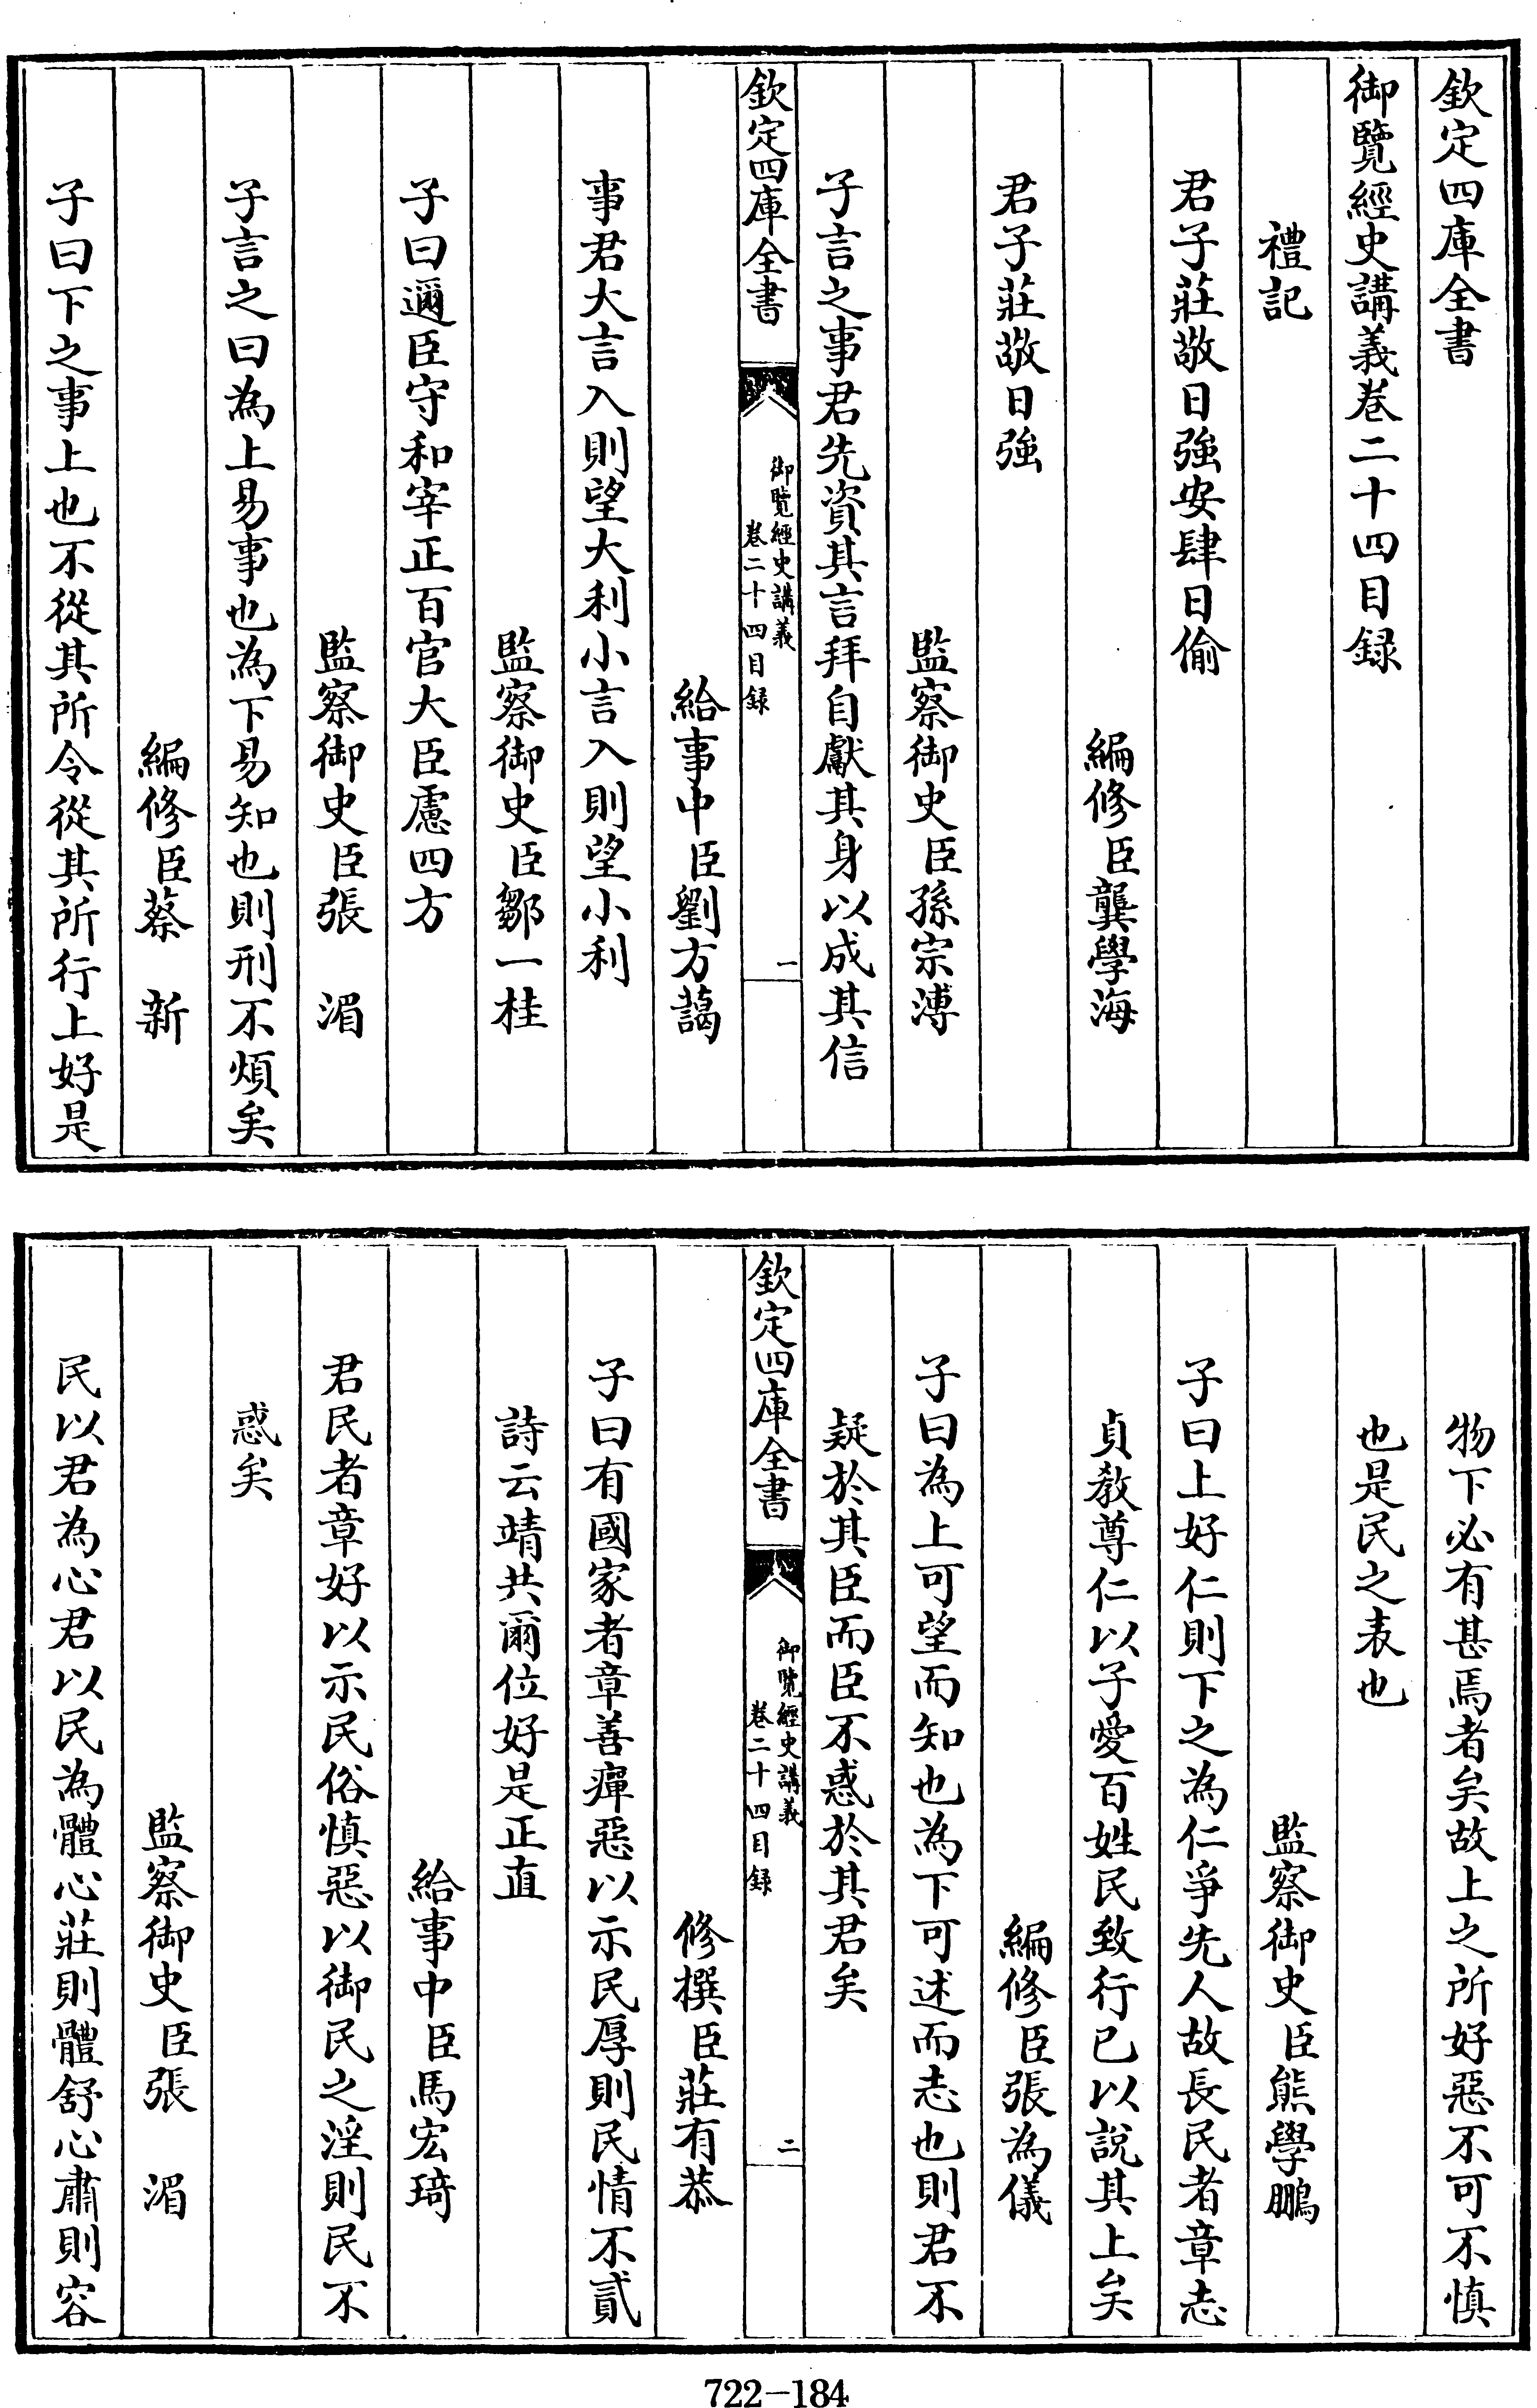 欽定四庫全書
御覽經史講義卷二十四目録
禮記
君子莊敬日強安肆日偷
編修臣龔學海
君子莊敬日強
監察御史臣孫宗溥
子言之事君先資其言拜自獻其身以成其信
欽定四庫全書
御覽經史講義
卷二十四目録
一
給事中臣劉方藹
事君大言入則望大利小言入則望小利
監察御史臣鄒一桂
子曰邇臣守和宰正百官大臣慮四方
監察御史臣張　湄
子言之曰為上易事也為下易知也則刑不煩矣
編修臣蔡　新
子曰下之事上也不從其所令從其所行上好是
物下必有甚焉者矣故上之所好惡不可不慎
也是民之表也
監察御史臣熊學鵬
子曰上好仁則下之為仁爭先人故長民者章志
貞教尊仁以子愛百姓民致行已以說其上矣
編修臣張為儀
子曰為上可望而知也為下可述而志也則君不
疑於其臣而臣不惑於其君矣
欽定四庫全書
御覽經史講義
卷二十四目録
二
修撰臣莊有恭
子曰有國家者章善癉惡以示民厚則民情不貳
詩云靖共爾位好是正直
給事中臣馬宏琦
君民者章好以示民俗慎惡以御民之淫則民不
惑矣
監察御史臣張　湄
民以君為心君以民為體心莊則體舒心肅則容
722-184